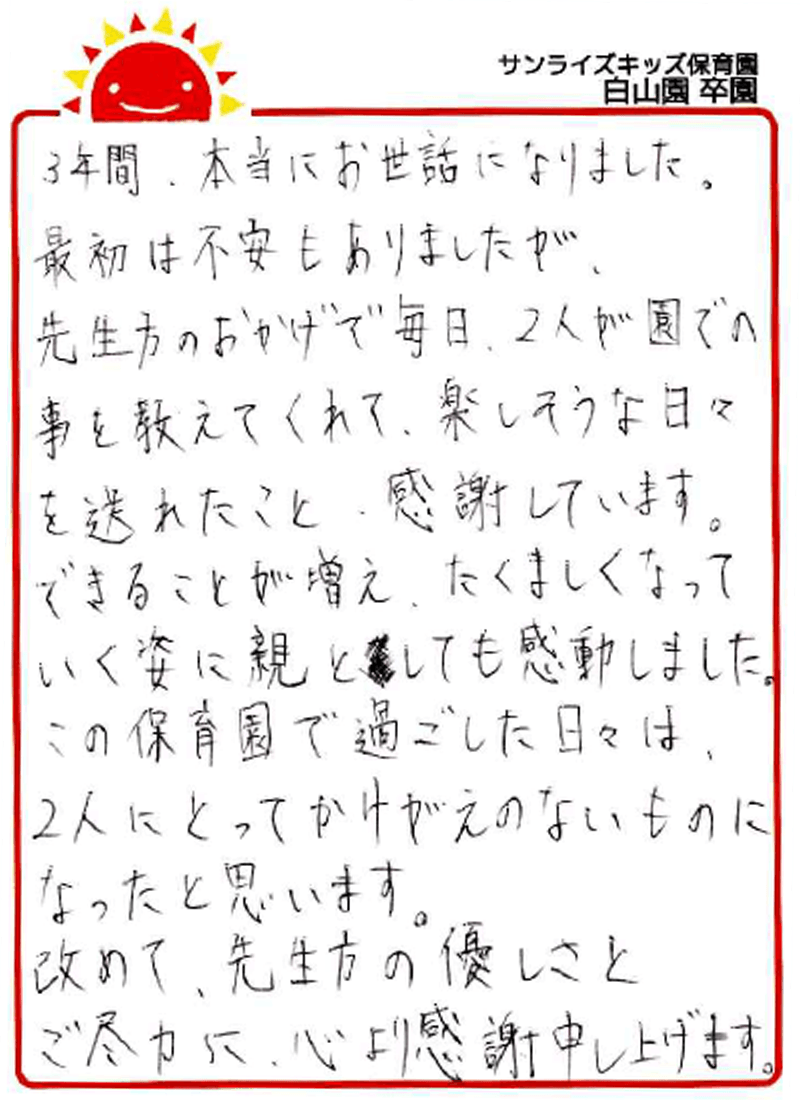 サンライズキッズ保育園
白山園 卒園
3年間、本当にお世話になりました。
最初は不安もありましたが、
先生方のおかげで毎日、2人が園での
事を教えてくれて、楽しそうな日々
を送れたこと、感謝しています。
できることが増え、たくましくなって
いく姿に親としても感動しました。
この保育園で過ごした日々は、
2人にとってかけがえのないものに
なったと思います。
改めて、先生方の優しさと
ご尽力に、心より感謝申し上げます。